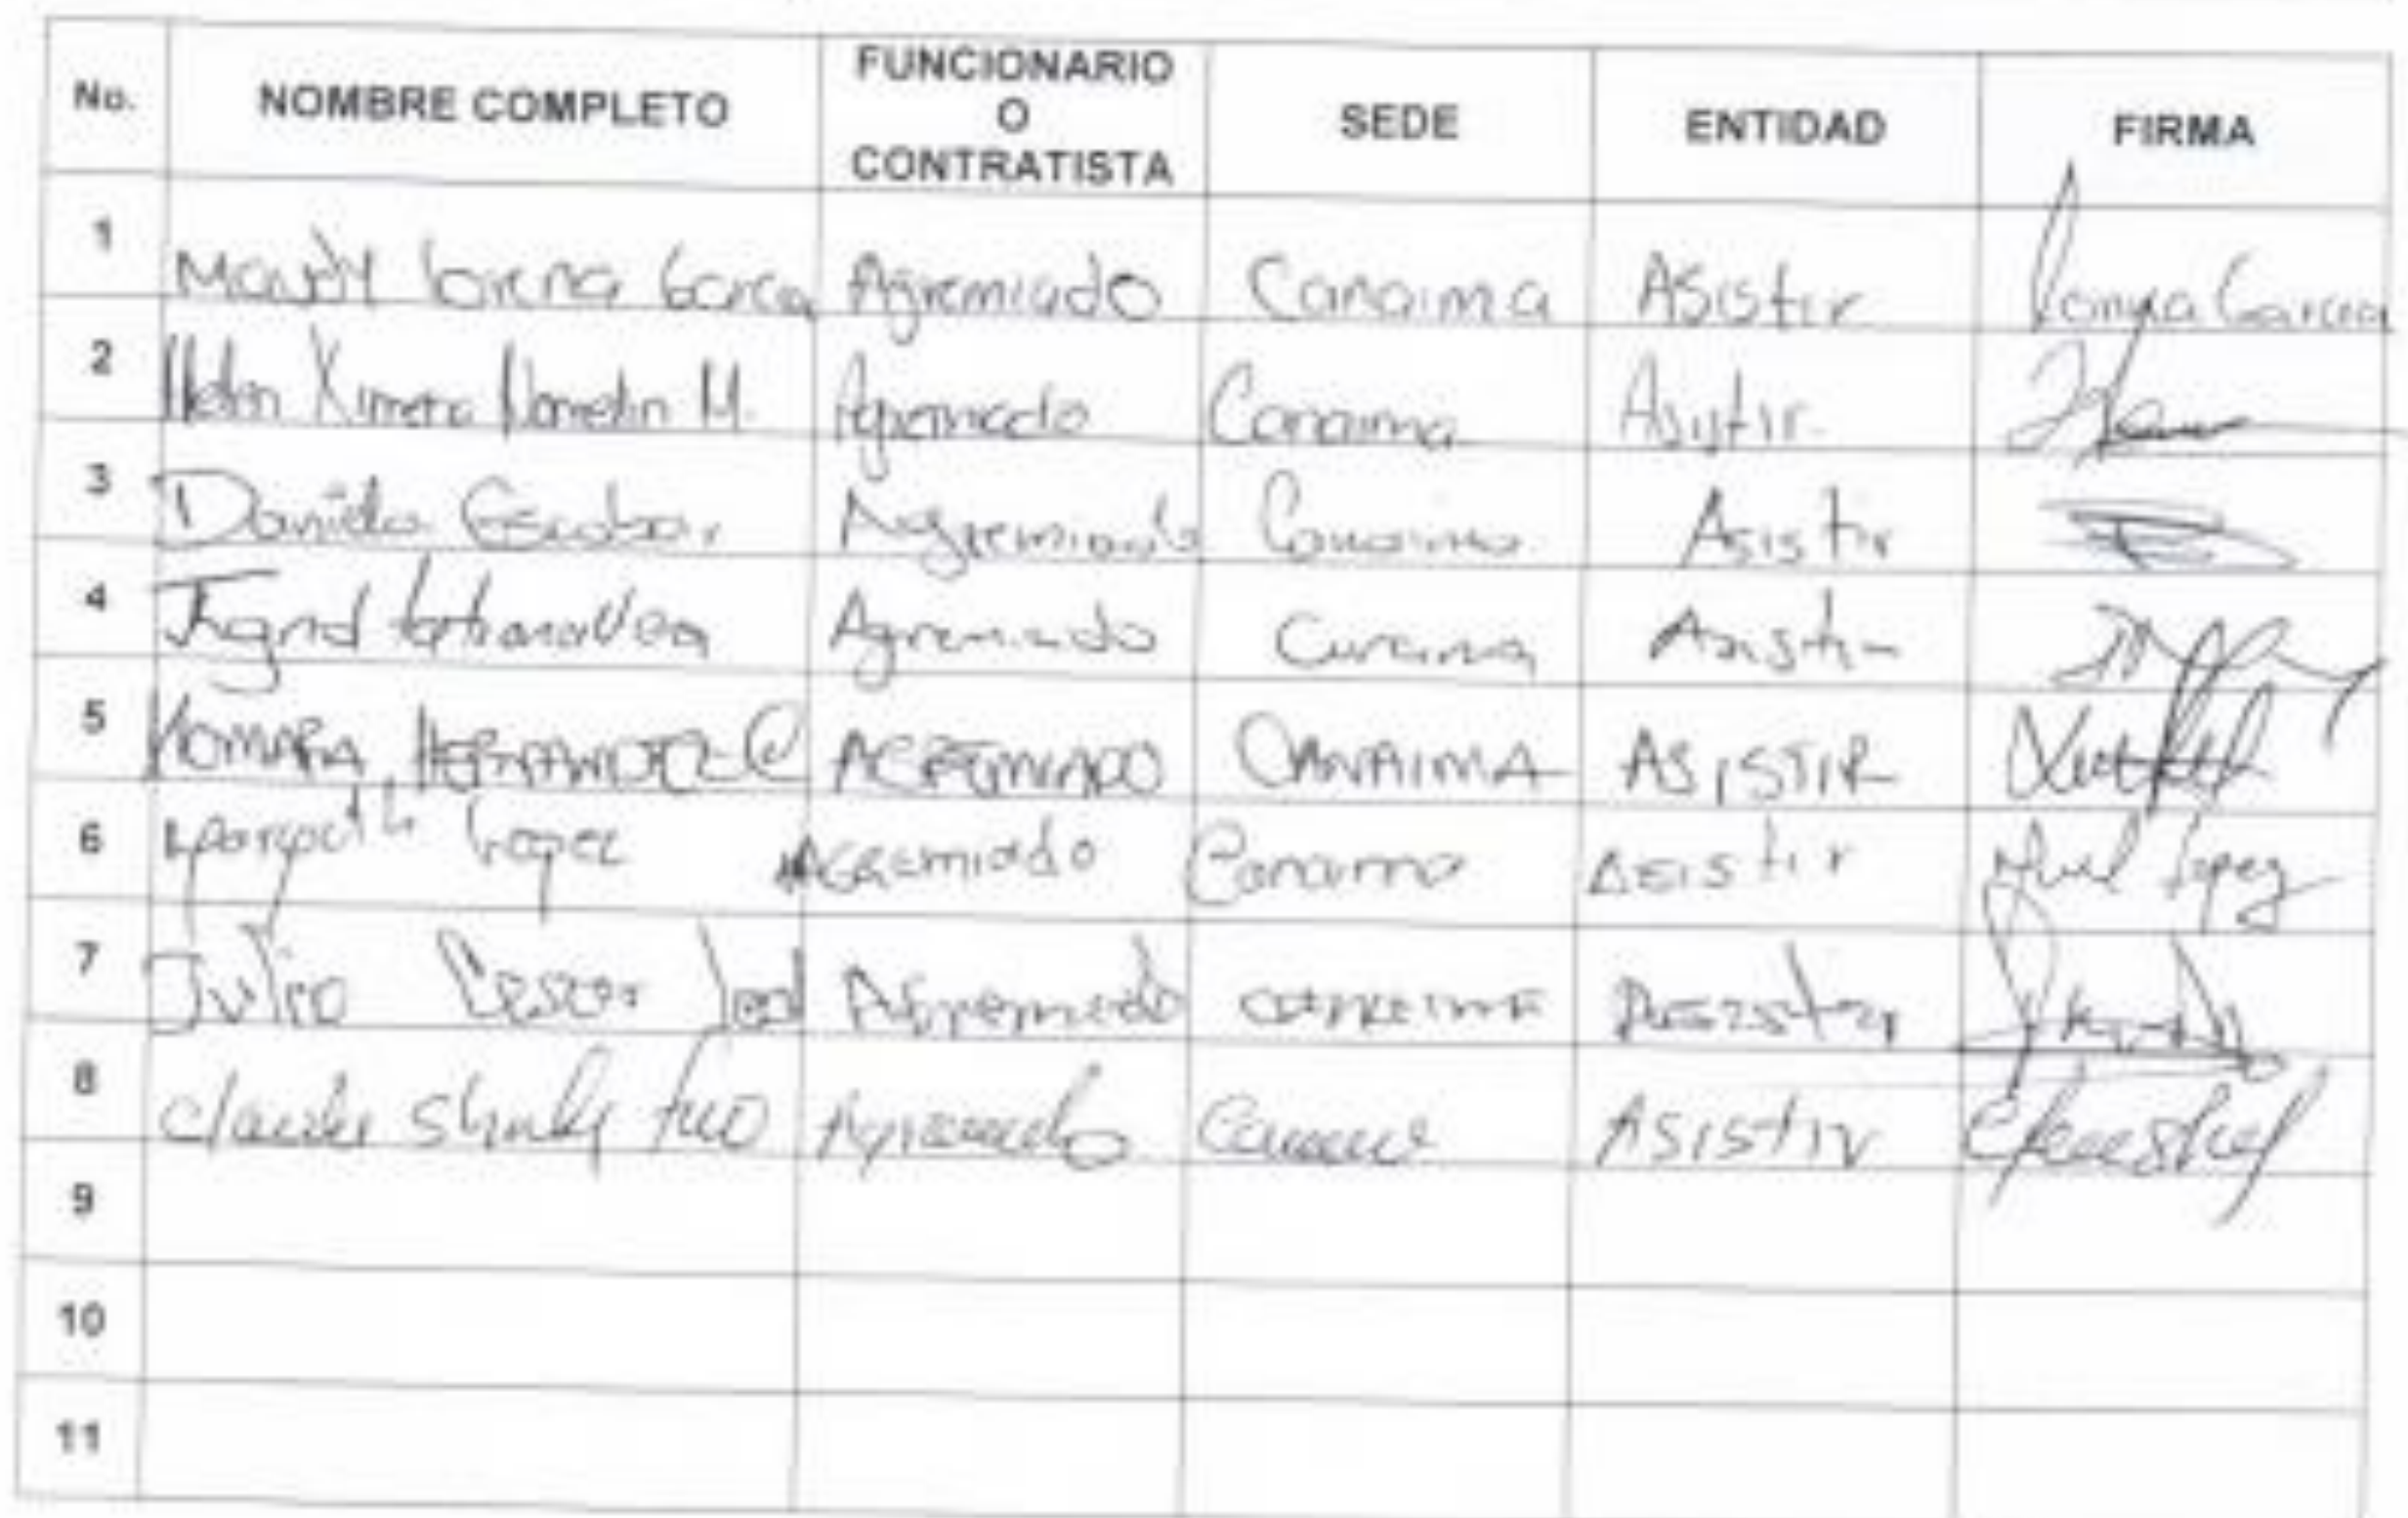 No. NOMBRE COMPLETO FUNCIONARIO O CONTRATISTA SEDE ENTIDAD FIRMA
1 Lorena Garcia Agremiado Canaima Asistir Lorena Garcia
2 Helen Ximena M. Agremiado Canaima Asistir
3 Daniela Escobar Agremiado Canaima Asistir
4 Ingrid tatiana Vega Agremiado Canaima Asistir
5 XIOMARA HERNANDEZ C AGREMIADO CANAIMA ASISTIR
6 Lopez AGREmiado Canaima Asistir Lopez
7 Julio Cesar Leal Agremiado Canaima Asistir
8 Agremiado Canaima Asistir
9
10
11